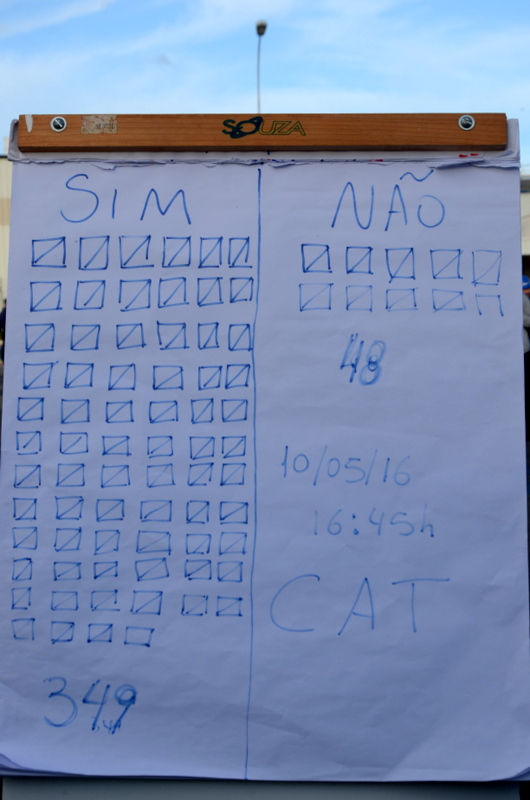 SOUZA
SIM
NÃO
48
10/05/16
16:45h
CAT
349